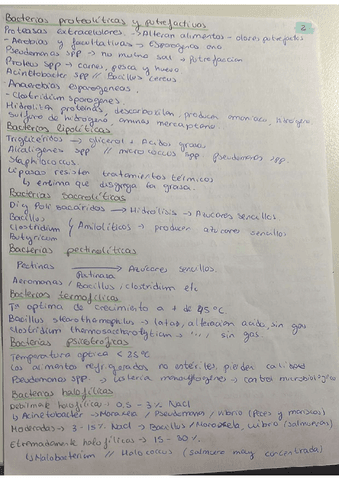 2
Bacterias proteolíticas y putrefactivas
Proteasas extracelulares → Alteran alimentos - olores putrefactos
- Aerobias y facultativas → Esporógena o no
Pseudomonas spp → no mucha sal → Putrefaccion
Proteus spp → carnes, pesca y huevo
Acinetobacter spp // Bacillus cereus
- Anaerobias esporogeneas.
- Clostridium sporogenes
Hidrolizan proteínas, descarboxilan, producen amoniaco,
sulfuro de hidrógeno, aminas mercaptano.
Bacterias lipolíticas.
Trigliceridos → glicerol + Acidos grasos
Alcaligenes spp // micrococcus spp Pseudomonas spp.
Staphilococcus.
Lipasas resisten tratamientos térmicos
↳ enzima que disgrega la grasa.
Bacterias sacarolíticas
Di y Poli sacáridos → Hidrólisis → Azucares sencillos
Bacillus
Clostridium Amilolíticos → producen azucares sencillos
Butyricum
Bacterias pectinolíticas
Pectinas → Azucares sencillos.
Pectinasa
Aeromonas / Bacillus / clostridium etc
Bacterias termofilicas
Tª optima de crecimiento a + de 45°C
Bacillus stearothermophilus → latas, alteracion acida, sin gas
Clostridium thermosaccharolyticum → sin gas
Bacterias psicotróficas
Temperatura optica < 25°C
Los alimentos refrigerados no estériles, pierden calidad
Pseudomonas spp. → Listeria monocytogenes → control microbiológico
Bacterias halofílicas
Debilmente halofílicas → 0,5 - 3% NaCl
↳ Acinetobacter → Moraxela / Pseudomonas / vibrio (Peces y mariscos)
Moderadas → 3 - 15% NaCl → Bacillus / Moraxela, vibrio (salmueras)
Extremadamente halofílicos → 15 - 30%
↳ Halobacterium // Halococcus (salmuera muy concentrada)